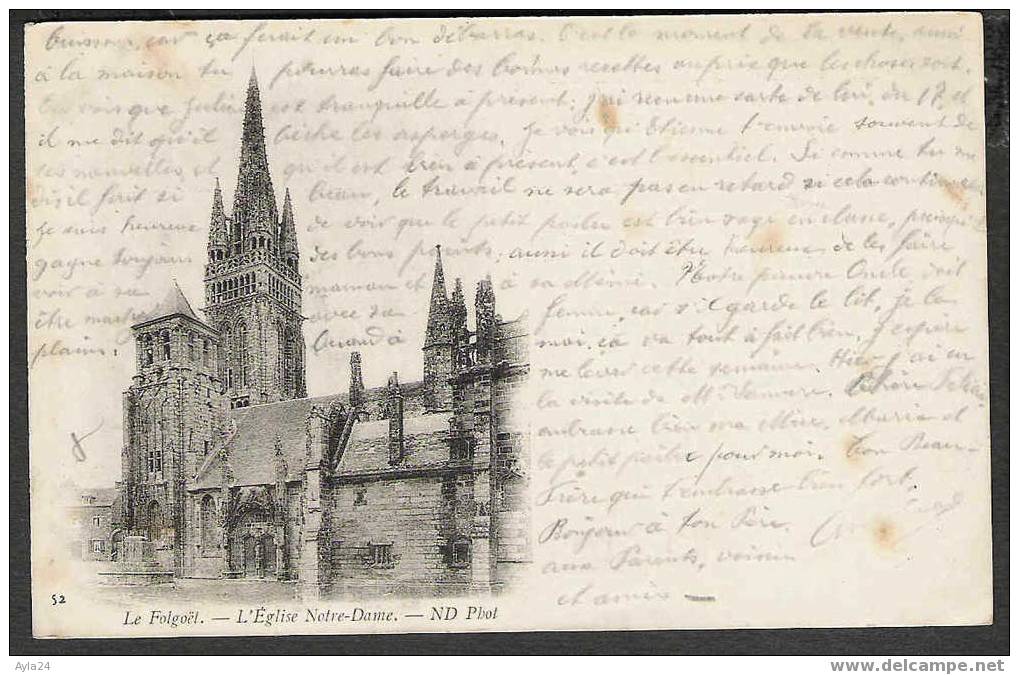 buissons, car ça ferait un bon débarras. C'est le moment de la vente, aussi
à la maison tu pourras faire des bonnes recettes au prix que les choses sont.
Tu vois que est tranquille à présent; j'ai reçu une carte de lui, du 17, et
il me dit qu'il bêche les asperges. Je vois qu'Étienne t'envoie souvent de
ses nouvelles et qu'il est bien à présent, c'est l'essentiel. Si comme tu me
dis il fait si beau, le travail ne sera pas en retard si cela continue
Je suis heureux de voir que le petit poilu est bien sage en classe, puisqu'il
gagne toujours des bons points; aussi il doit être heureux de les faire
voir à sa maman et à sa Mémé. Notre pauvre Oncle doit
être avec sa femme, car s'il garde le lit, je la
plains. Quand à moi, ça va tout à fait bien, j'espère
me lever cette semaine. Hier, j'ai eu
la visite de Mr
embrasse bien ma Mère, Maria et
le petit poilu pour moi. Ton Beau-
Frère qui t'embrasse bien fort.
Bonjour à ton Père.
aux Parents, voisins
et amis
52
Le Folgoët. — L'Église Notre-Dame. — ND Phot
Ayla24
www.delcampe.net